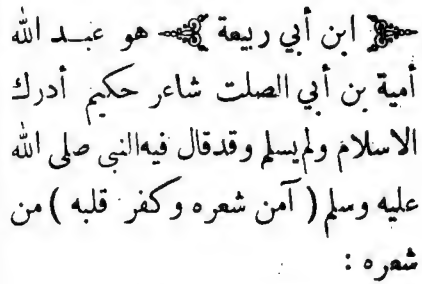 ابن أبي ربيعة هو عبد الله
أمية بن أبي الصلت شاعر حكيم أدرك
الاسلام ولم يسلم وقد قال فيه النبي صلى الله
عليه وسلم ( آمن شعره وكفر قلبه ) من
شعره :